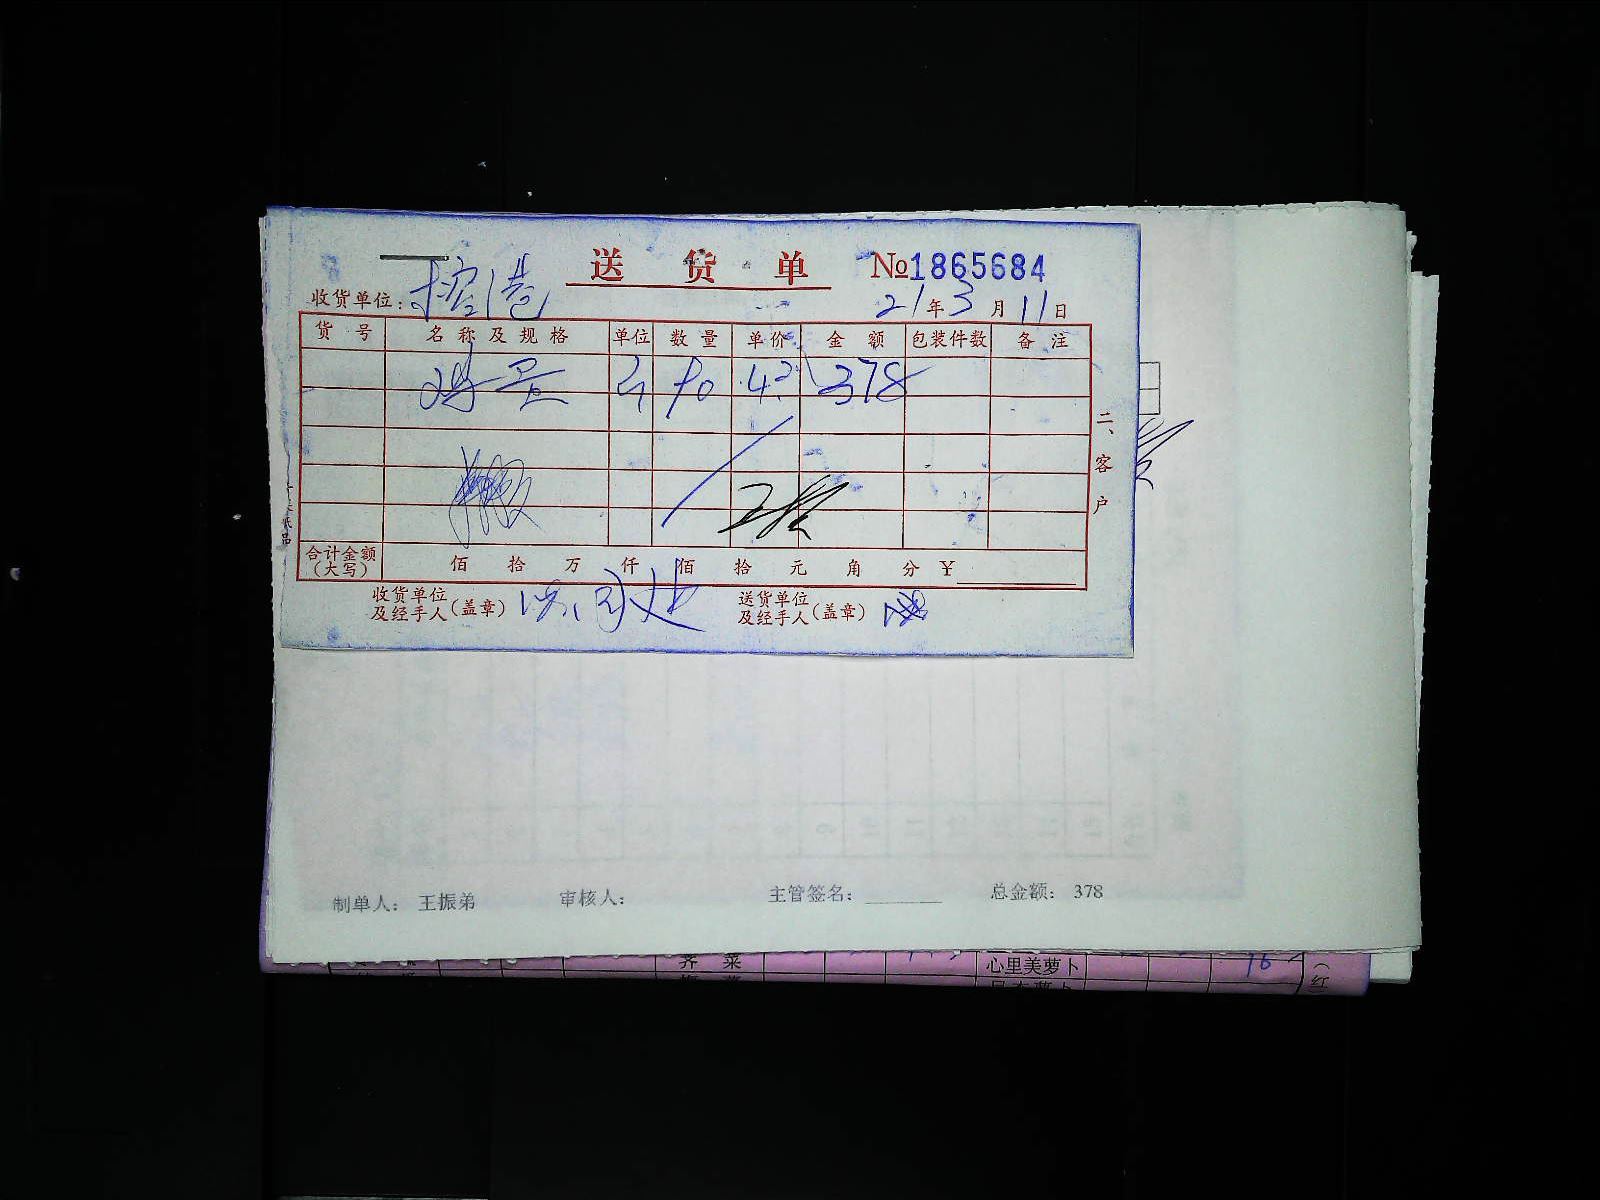 送货单 №1865684
收货单位：榕港 21年3月11日
货号 名称及规格 单位 数量 单价 金额 包装件数 备注
鸡蛋 斤 90 4.2 378
二、客户
合计金额（大写） 佰 拾 万 仟 佰 拾 元 角 分 ￥
收货单位及经手人（盖章） 送货单位及经手人（盖章）
制单人： 王振弟 审核人： 主管签名： 总金额： 378
荠菜 心里美萝卜 16 （红